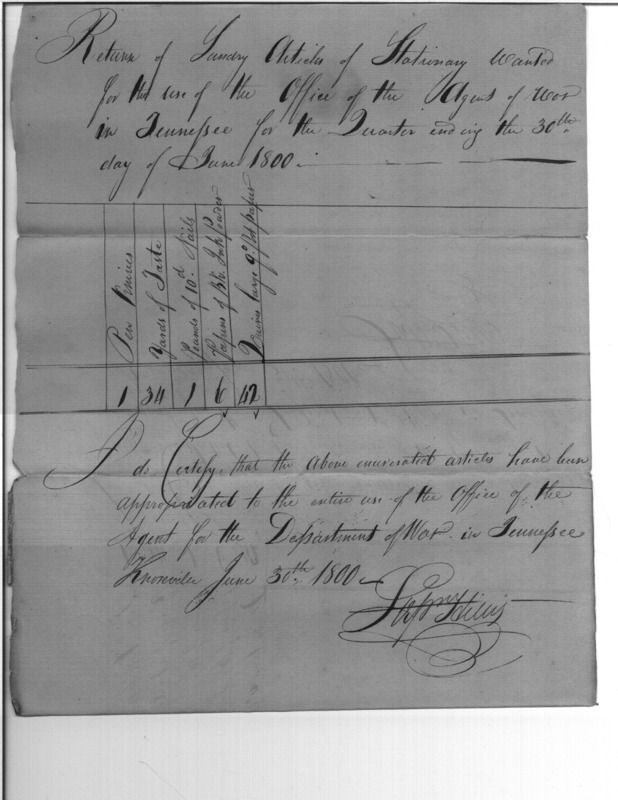 Return of Sundry Articles of Stationary Wanted
for the use of the Office of the Agent of War
in Tennessee for the Quarter ending the 30th
day of June 1800.
Pen Knives
Yards of Taste
Pounds of 10d Nails
Papers of Blk. Ink Powder
Quires large Qo. Post paper
1 34 1 6 42
I do Certify that the above enumerated articles have been
appropriated to the entire use of the Office of the
Agent for the Department of War in Tennessee
Knoxville June 30th 1800